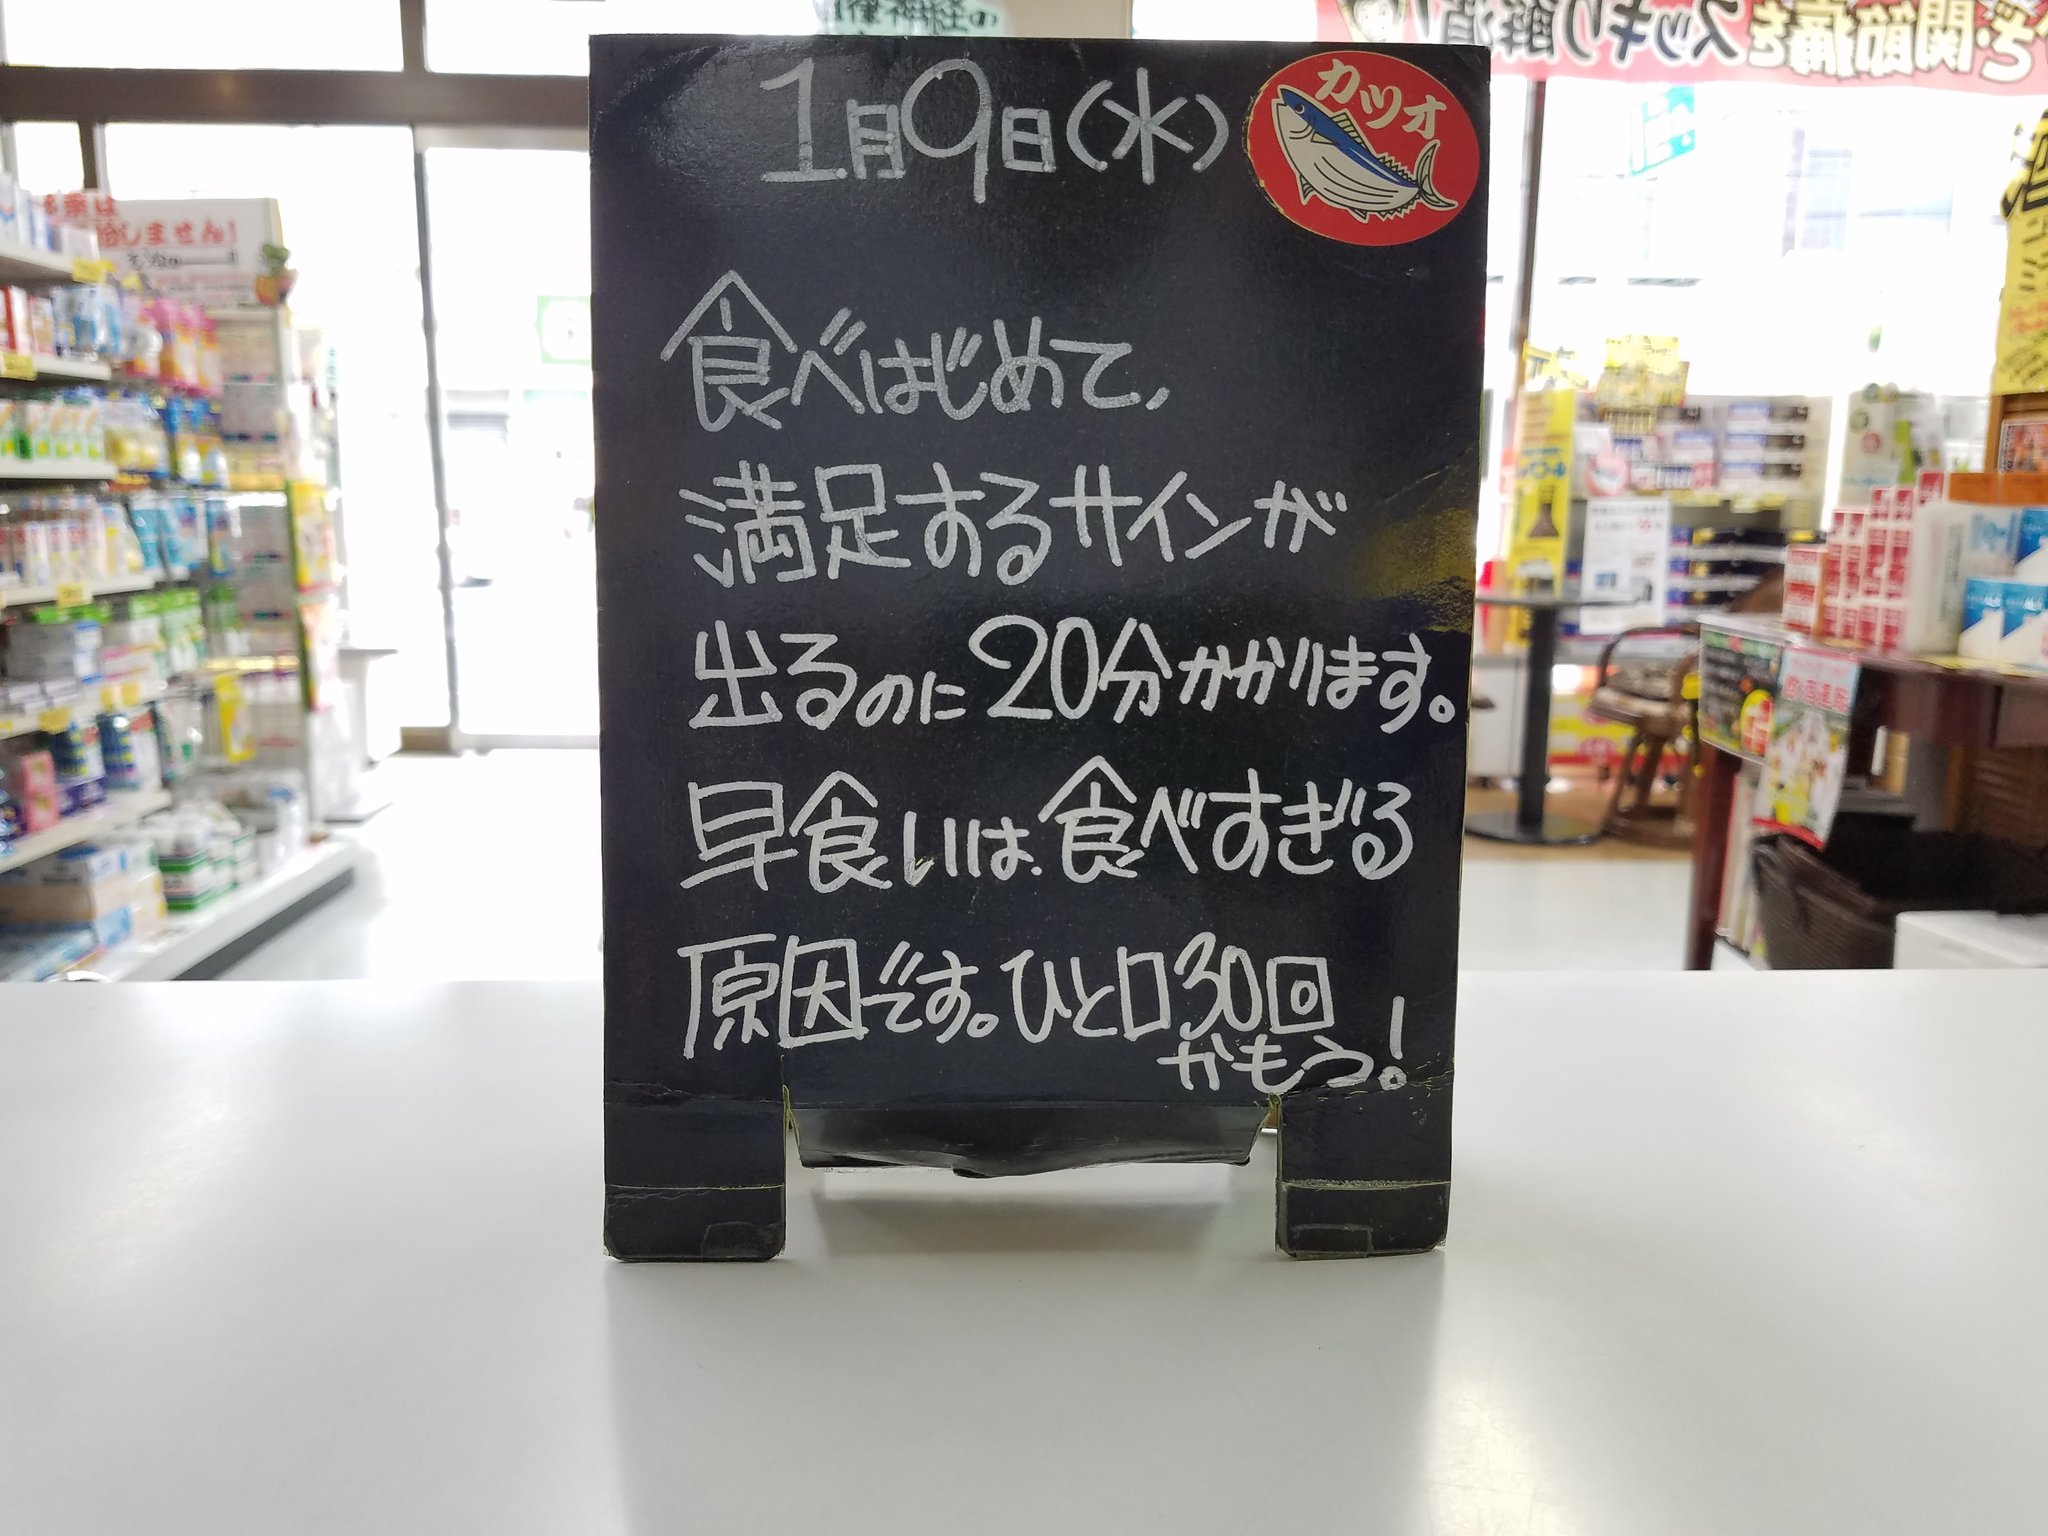 1月9日(水)
カツオ
食べはじめて、
満足するサインが
出るのに20分かかります。
早食いは食べすぎる
原因です。ひと口30回
かもう!
律神経の
関節痛をスッキリ解消!
しません!